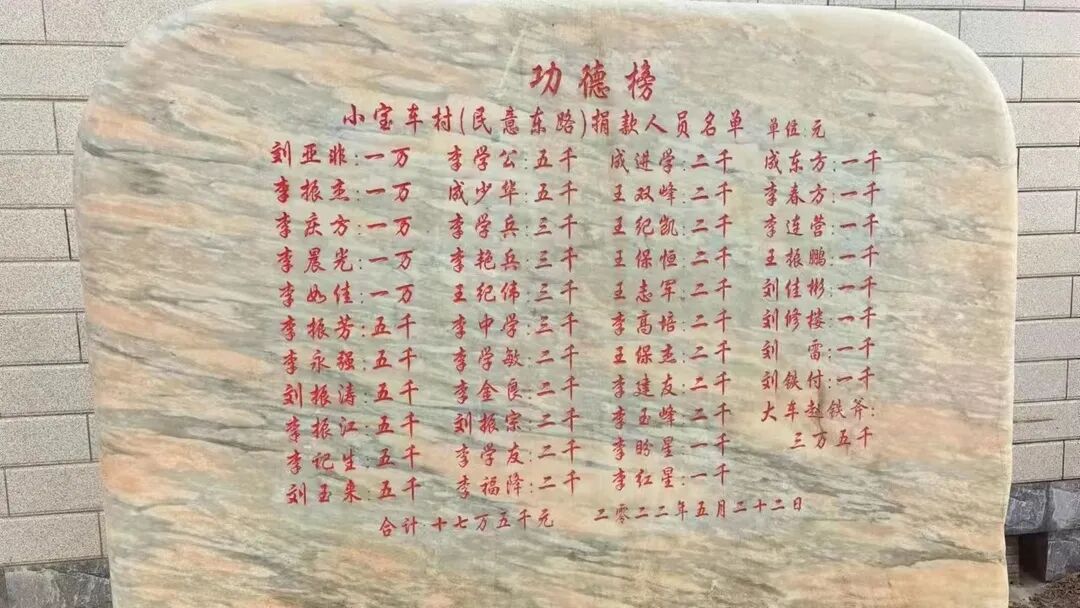 功德榜
小宝车村(民意东路)捐款人员名单 单位:元
刘亚非:一万 李学公:五千 成进学:二千 成东方:一千
李振杰:一万 成少华:五千 王双峰:二千 李春方:一千
李庆方:一万 李学兵:三千 王纪凯:二千 李连营:一千
李晨光:一万 李艳兵:三千 王保恒:二千 王振鹏:一千
李如佳:一万 王纪伟:三千 王志军:二千 刘佳彬:一千
李振芳:五千 李中学:三千 李高培:二千 刘修楼:一千
李永强:五千 李学敏:二千 王保杰:二千 刘雷:一千
刘振涛:五千 李金良:二千 李建友:二千 刘铁付:一千
李振江:五千 刘振宗:二千 李玉峰:二千 大车赵铁斧:
李记生:五千 李学友:二千 李盼星:一千 三万五千
刘玉来:五千 李福降:二千 李红星:一千
合计 十七万五千元 二零二二年五月二十二日